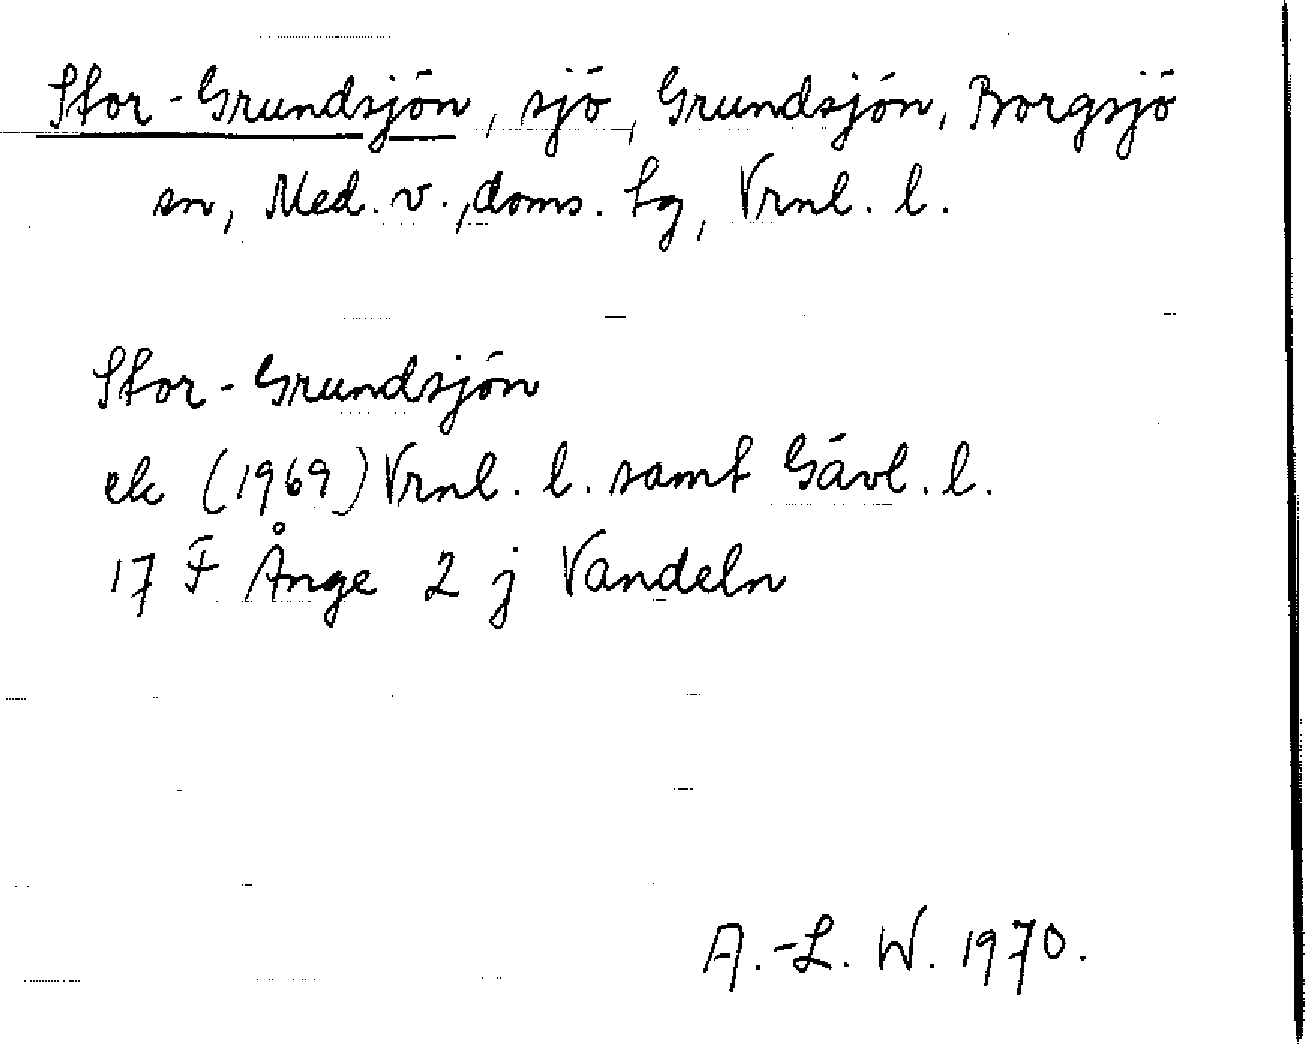 Stor-Grundsjön, sjö, Grundsjön, Borgsjö
sn, Med. v., doms. tg, Vrnl. l.
Stor-Grundsjön
ek (1969) Vrnl. l. samt Gävl. l.
17 F Ånge 2 j Vandeln
A.-L. W. 1970.